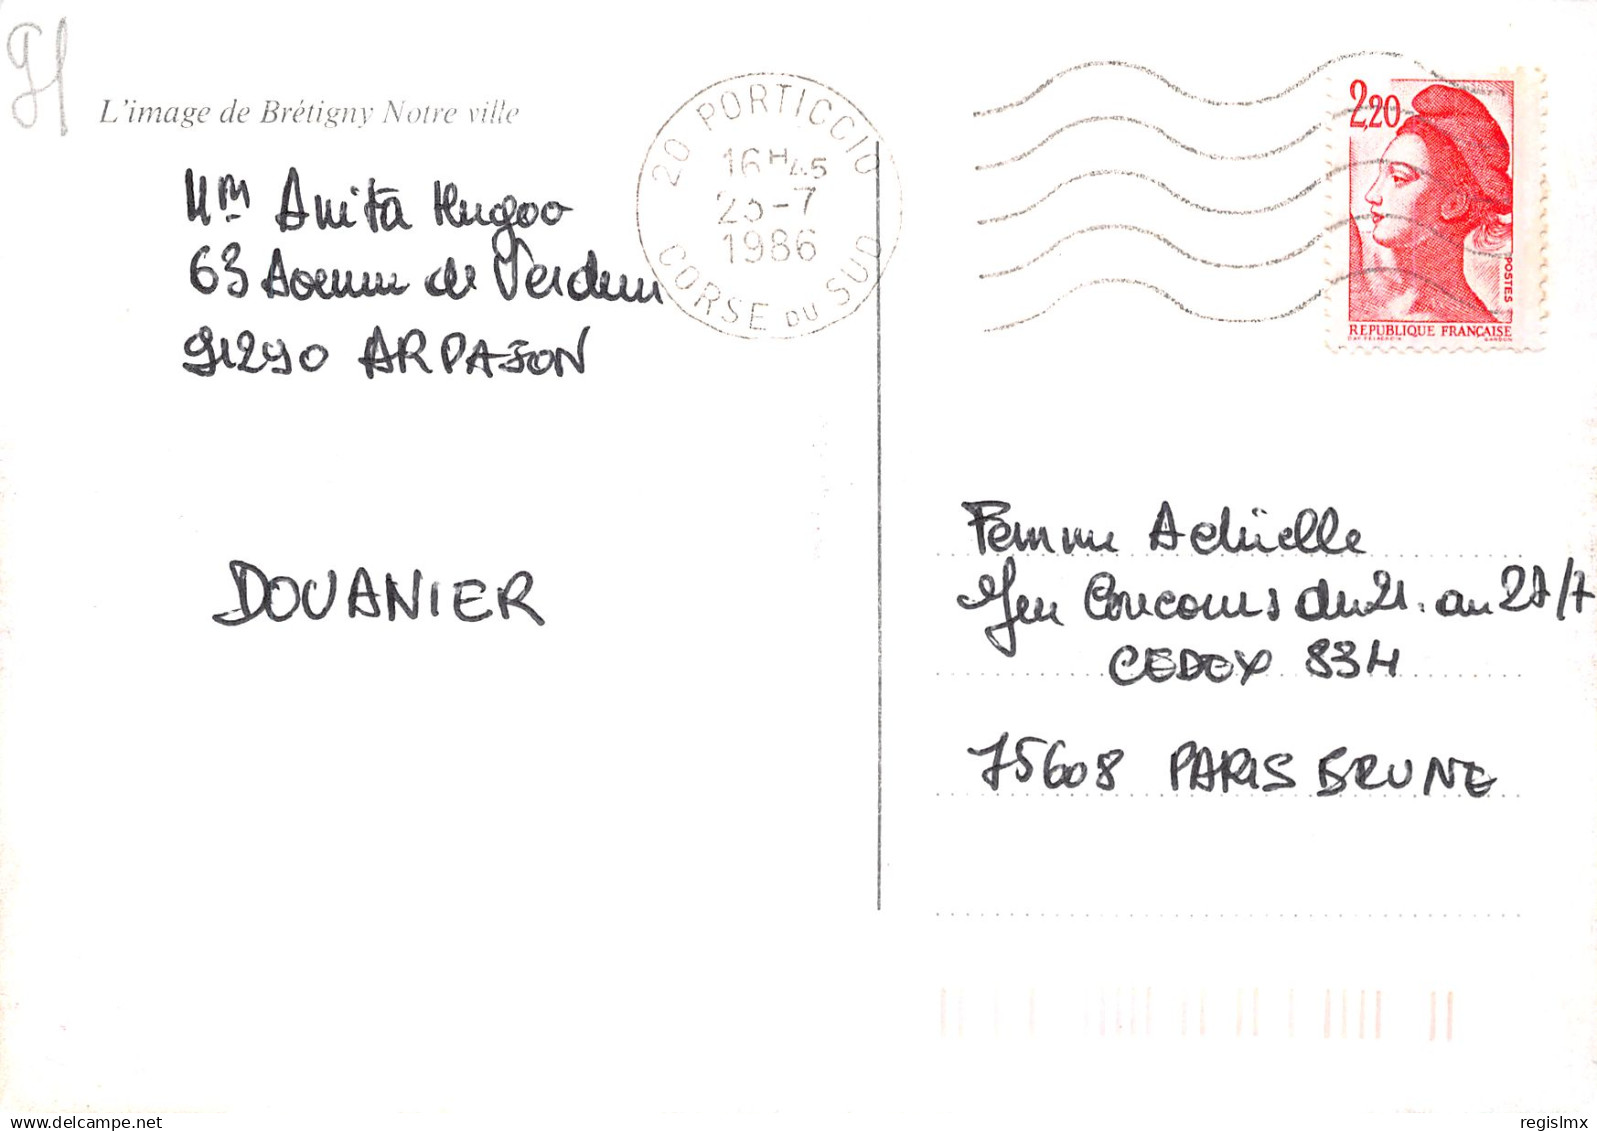 91
L'image de Brétigny Notre ville
Mme Anita Hugoo
63 Avenue de Verdun
91290 ARPAJON
DOUANIER
20 PORTICCIO
16H45
25-7
1986
CORSE DU SUD
2,20
POSTES
REPUBLIQUE FRANÇAISE
GANDON
Femme Actuelle
Jeu Concours du 21. au 27/7
CEDEX 834
75608 PARIS BRUNE
regislmx